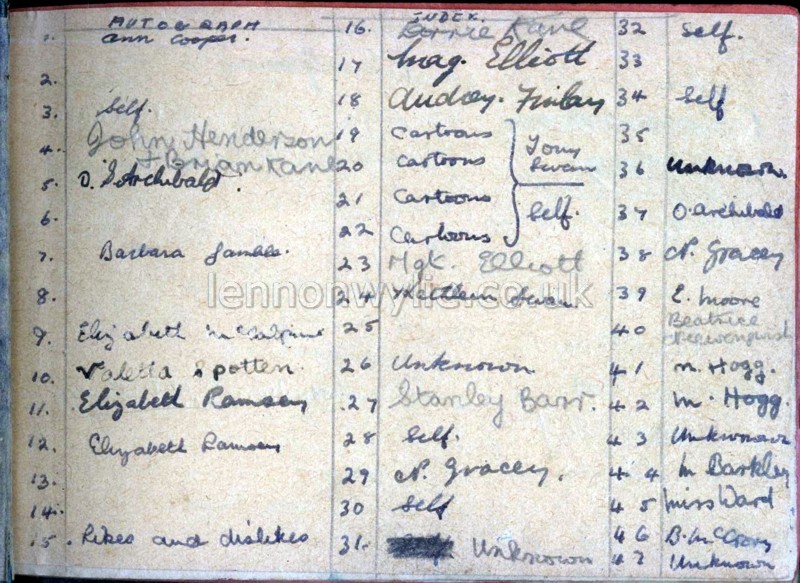 AUTOGRAPH INDEX.
1. Ann Cooper.
2.
3. Self.
4. John Henderson
Florian Kane
5. D. S Archibald.
6.
7. Barbara Gamble.
8.
9. Elizabeth McCalpine
10. Valetta Spotten.
11. Elizabeth Ramsey
12. Elizabeth Ramsey
13.
14.
15. Likes and dislikes
16. Kane
17 Mag. Elliott
18 Audrey. Finlay
19 Cartoons
20 Cartoons
Tony Swan
21 Cartoons
Self.
22 Cartoons
23 Mgt. Elliott
24 Kathleen Swan
25
26 Unknown
27 Stanley Barr.
28 Self.
29 N. Gracey.
30 Self
31. Unknown
32 Self.
33
34 Self
35
36 Unknown.
37 O. Archibald
38 N. Gracey
39 E. Moore
40 Beatrice
41 M. Hogg.
42 M. Hogg.
43 Unknown
44 M Barkley
45 Miss Ward
46 B. McCrory
47 Unknown
lennonwylie.co.uk